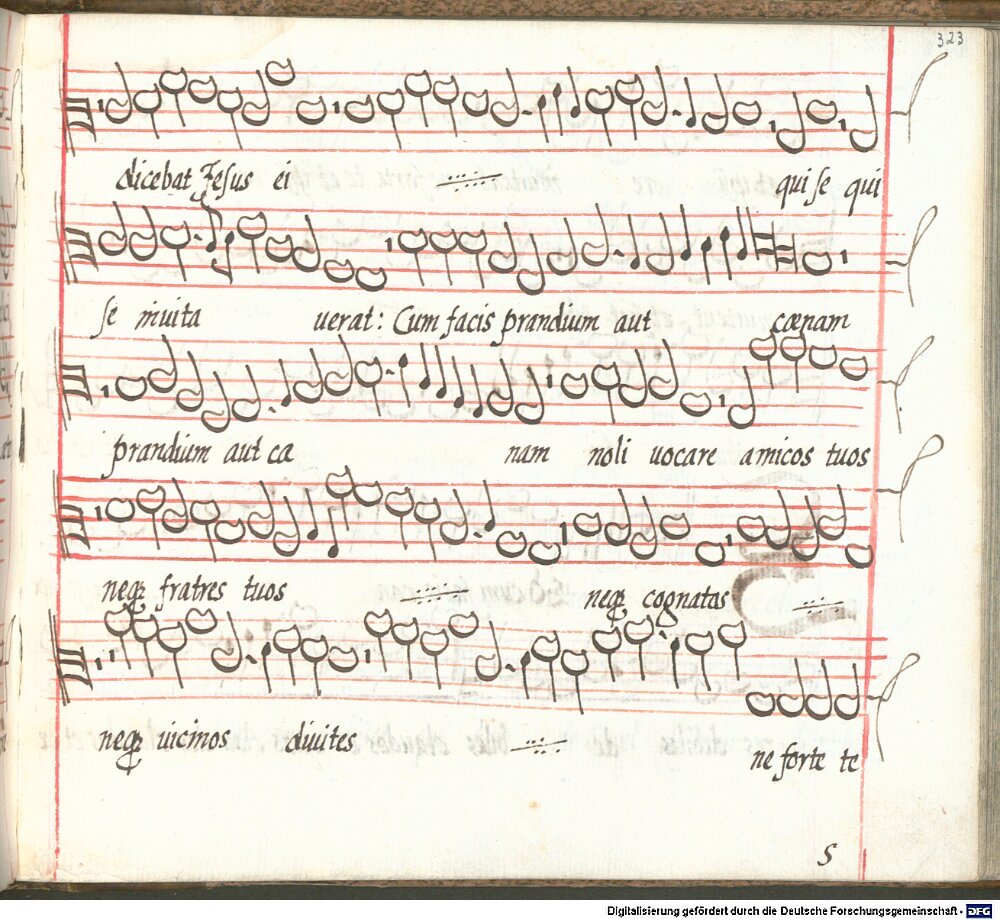 323
dicebat Jesus ei qui se qui
se inuita uerat: Cum facis prandium aut cœnam
prandium aut cœ nam noli uocare amicos tuos
neqꝫ fratres tuos neqꝫ cognatos
neqꝫ uicinos diuites
ne forte te
S
Digitalisierung gefördert durch die Deutsche Forschungsgemeinschaft - DFG